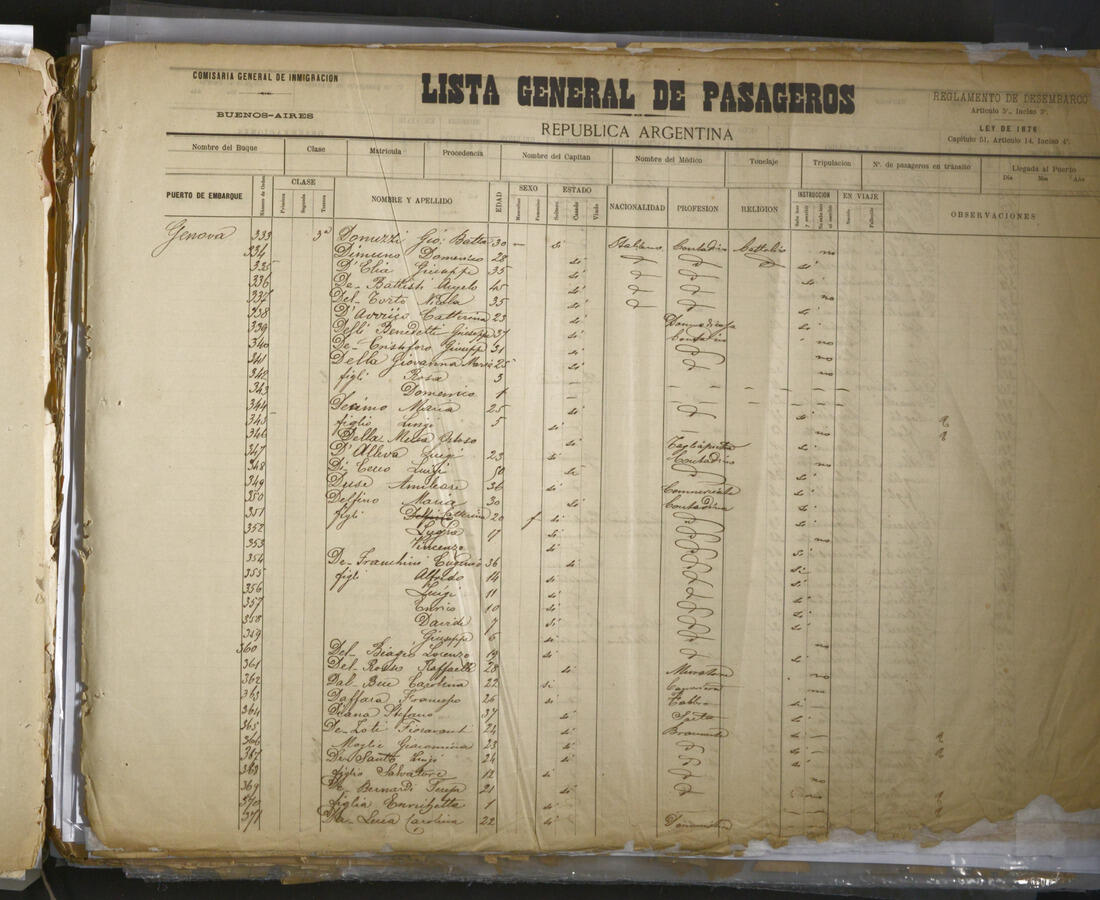 COMISARIA GENERAL DE INMIGRACION
BUENOS-AIRES
LISTA GENERAL DE PASAGEROS
REPUBLICA ARGENTINA
REGLAMENTO DE DESEMBARCO
Artículo 5º, Inciso 3º.
LEY DE 1876
Capítulo 51, Artículo 14, Inciso 4º.
Nombre del Buque Clase Matricula Procedencia Nombre del Capitan Nombre del Médico Tonelaje Tripulacion Nº. de pasageros en tránsito Llegada al Puerto
Dia Mes Año
PUERTO DE EMBARQUE Número de Orden CLASE Primera Segunda Tercera NOMBRE Y APELLIDO EDAD SEXO Masculino Femenino ESTADO Soltero Casado Viudo NACIONALIDAD PROFESION RELIGION INSTRUCCION Sabe leer y escribir No sabe leer ni escribir EN VIAJE Nacido Fallecido OBSERVACIONES
Genova 333 3ª Domezzi Gio: Batta 30 — si Italiano Contadino Cattolico no
334 Dimuno Domenico 28 si si
335 D'Elia Giuseppe 35 si si
336 De-Battisti Angelo 45 si no
337 Del-Torto Nicola 35 si si
338 Catterina 23 si si
339 Benedetti Giuseppe 37 si Contadino no
340 De-Cristoforo Giuseppe 31 si no
341 Della Giovanna Maria 25 si no
342 figli Rosa 3 —
343 Domenico 1 — — — — — — —
344 Decimo Maria 25 si si
345 figlio Luigi 5 si no
346 Della si
347 D'Alleva Luigi 23 si Contadino no
348 Di Cecco Luigi 50 si si
349 Duse Amilcare 36 si Commerciante si
350 Delfino Maria 30 si Contadina si
351 figli Catterina 20 f si si
352 Luigia 17 si no
353 Vincenzo si si
354 De-Franchini Eugenio 36 si si
355 figli Alfredo 14 si si
356 Luigi 11 si si
357 Enrico 10 si si
358 Davide 7 si si
359 Giuseppe 6 si no
360 Del-Biagio Lorenzo 19 si si
361 Del-Rosso Raffaele 28 si Muratore no
362 Dal-Bue Carolina 22 si no
363 Daffara Francesco 26 si Fabbro si
364 Diana Stefano 37 si Sarto si
365 De-Zoti Fioravanti 24 si si
366 Moglie Giacomina 23 si si
367 De Santo Luigi 24 si si
368 figlio Salvatore 12 si no
369 De Bernardi Teresa 21 si
370 figlia Enrichetta 1 si no
371 De-Luca Carolina 22 si